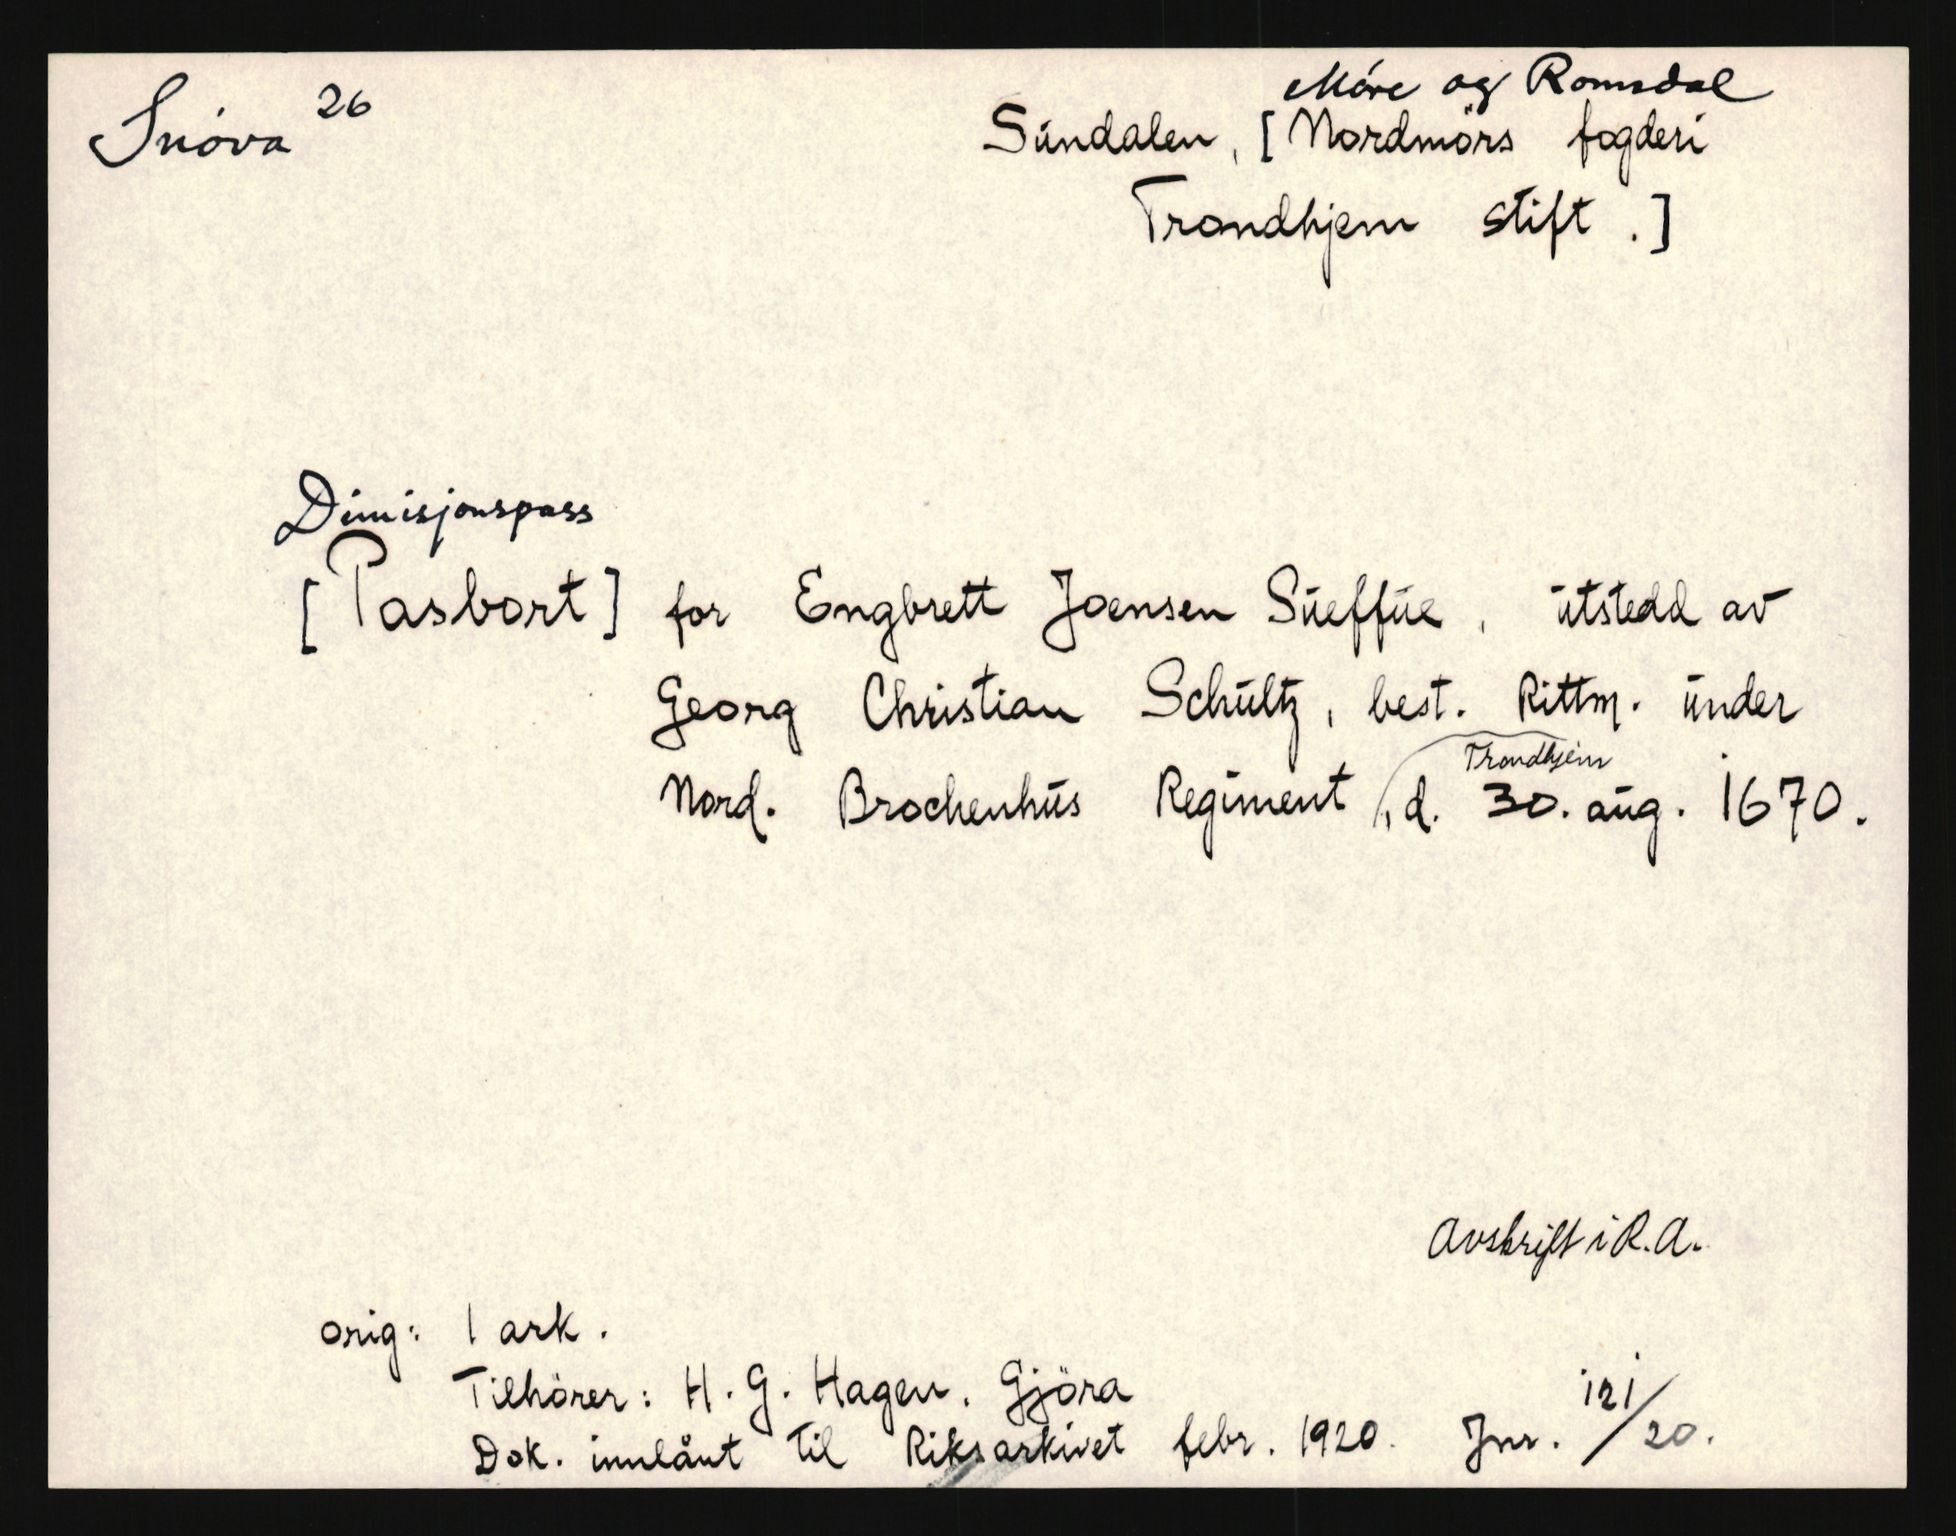 Snöva 26
Möre og Romsdal
Sundalen, [Nordmörs fogderi
Trondhjem stift.]
Dimisjonspass
[Pasbort] for Engbrett Joensen Sueffue, utstedd av
Georg Christian Schultz, best. Rittm. under
Trondhjem
Nord. Brochenhus Regiment, d. 30. aug. 1670.
Avskrift i R.A.
orig: 1 ark.
Tilhörer: H. G. Hagen, Gjöra
Dok. innlånt til Riksarkivet febr. 1920. Jnr. 121/20.